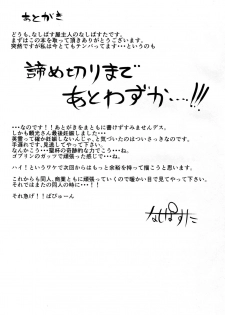 あとがき
どうも、なしぱす屋主人のなしぱすたです。
まずはこの本を取って頂きありがとうございます。
突然ですが私は今とてもテンパってます・・・というのも
諦め切りまで
あとわずか…!!!
・・・なのです！！あとがきをまともに書けずすみませんデス。
しかも観光さん最後妊娠しました・・・
英霊って確か妊娠しないんじゃ、と気づいたのはついさっきなのです。
手遅れです、見逃してやって下さい。
なんかこう・・聖杯の奇跡的な力でこう・・・ね。
ゴブリンのガッツが頑張った感じで・・・ね。
ハイ！というワケで次回からはもっと余裕を持って描こうと思います。
これからも同人、商業ともに頑張っていくので暖かい目で見てやって下さい。
それではまたの同人の時に・・・！！
それ急げ！！ばびゅーん
なしぱすた